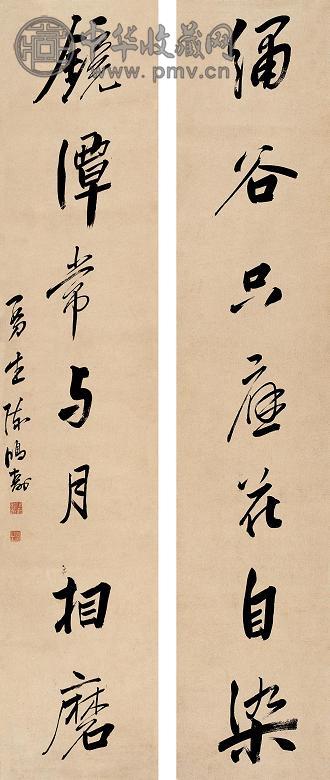 中华收藏网
www.pmv.cn
繡谷只應花自染
鏡潭常与月相磨
曼生陳鴻壽